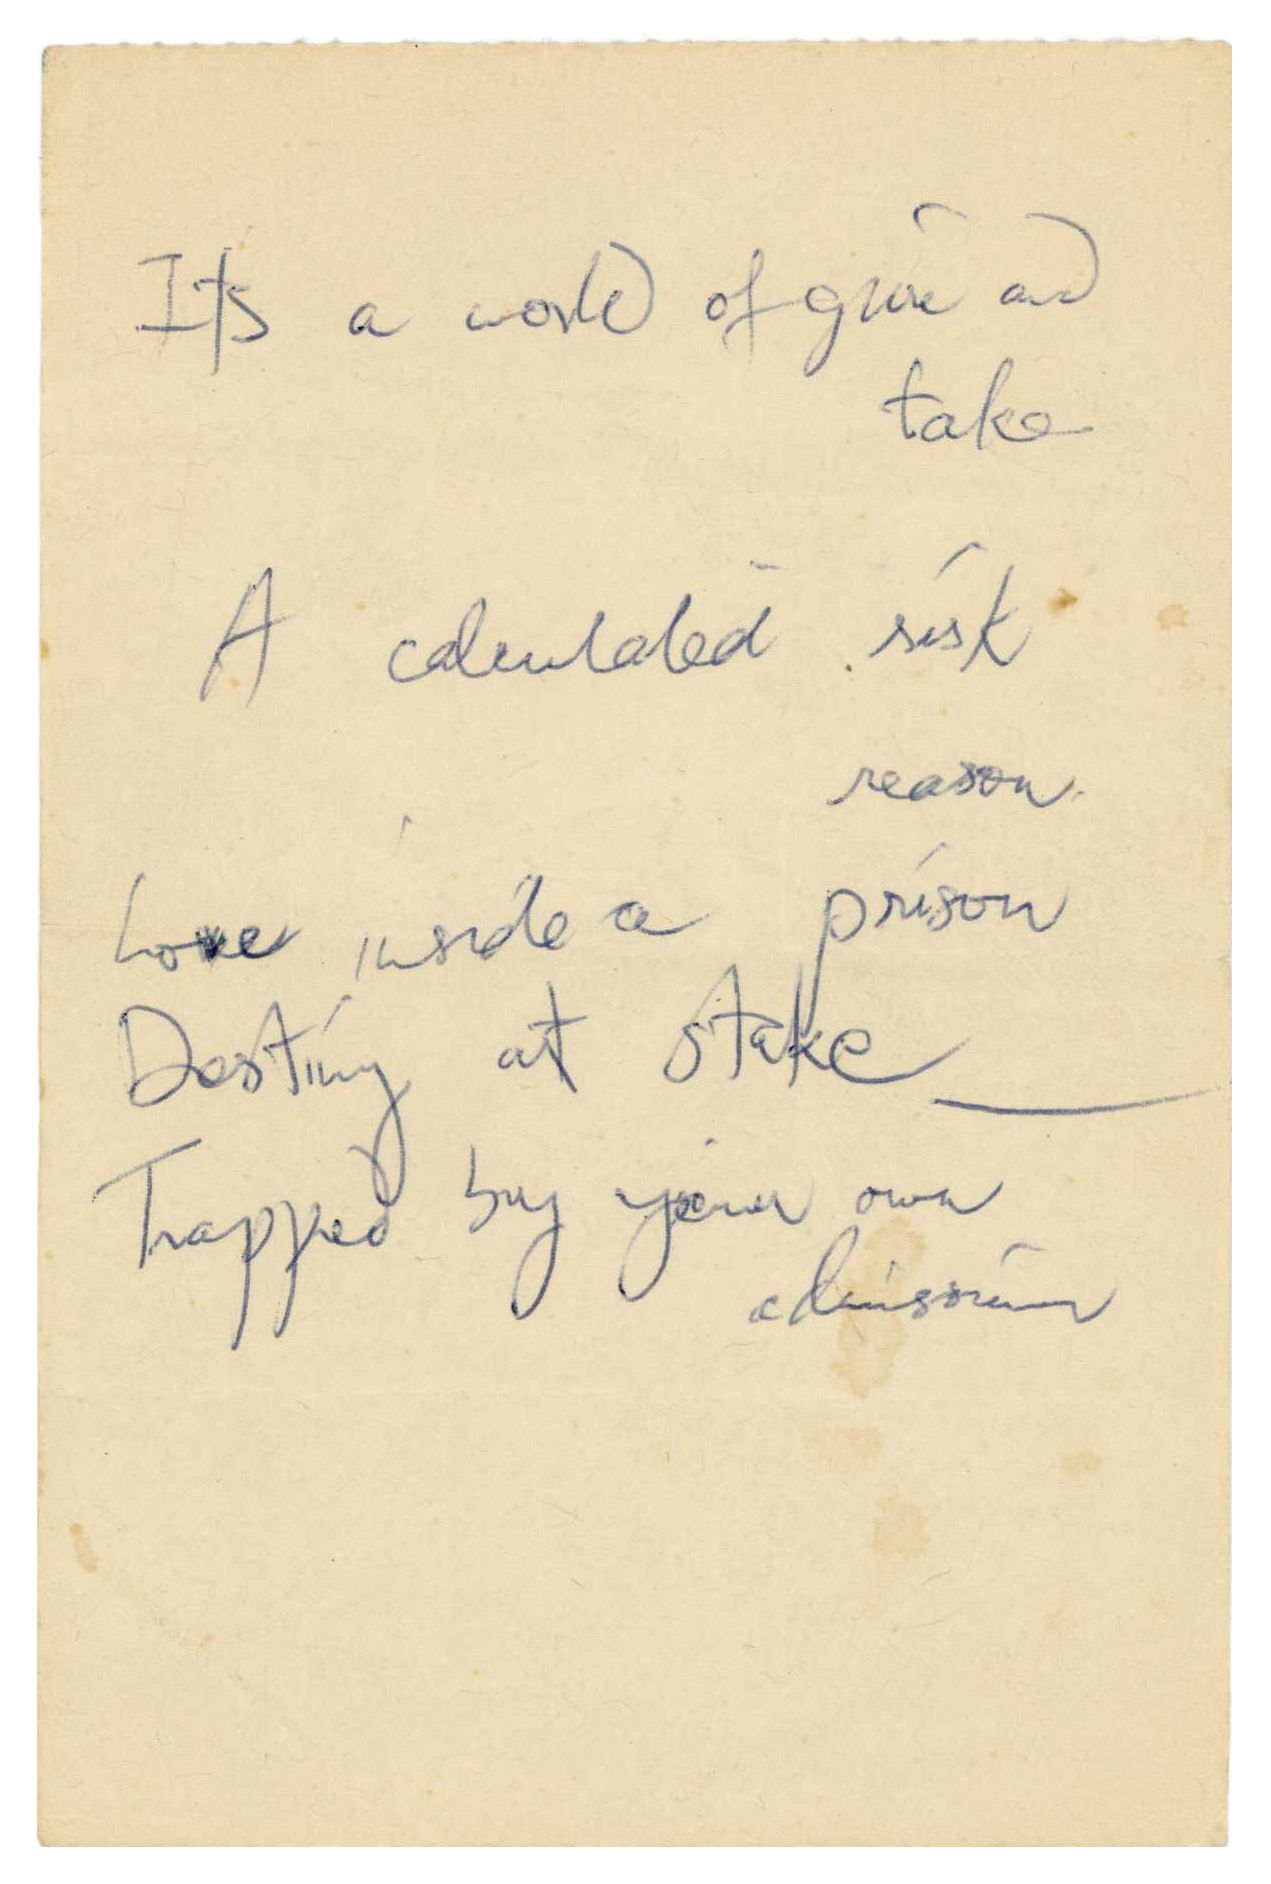 Its a world of give and
take
A calculated risk
reason
Love inside a prison
Destiny at stake
Trapped by your own
admission